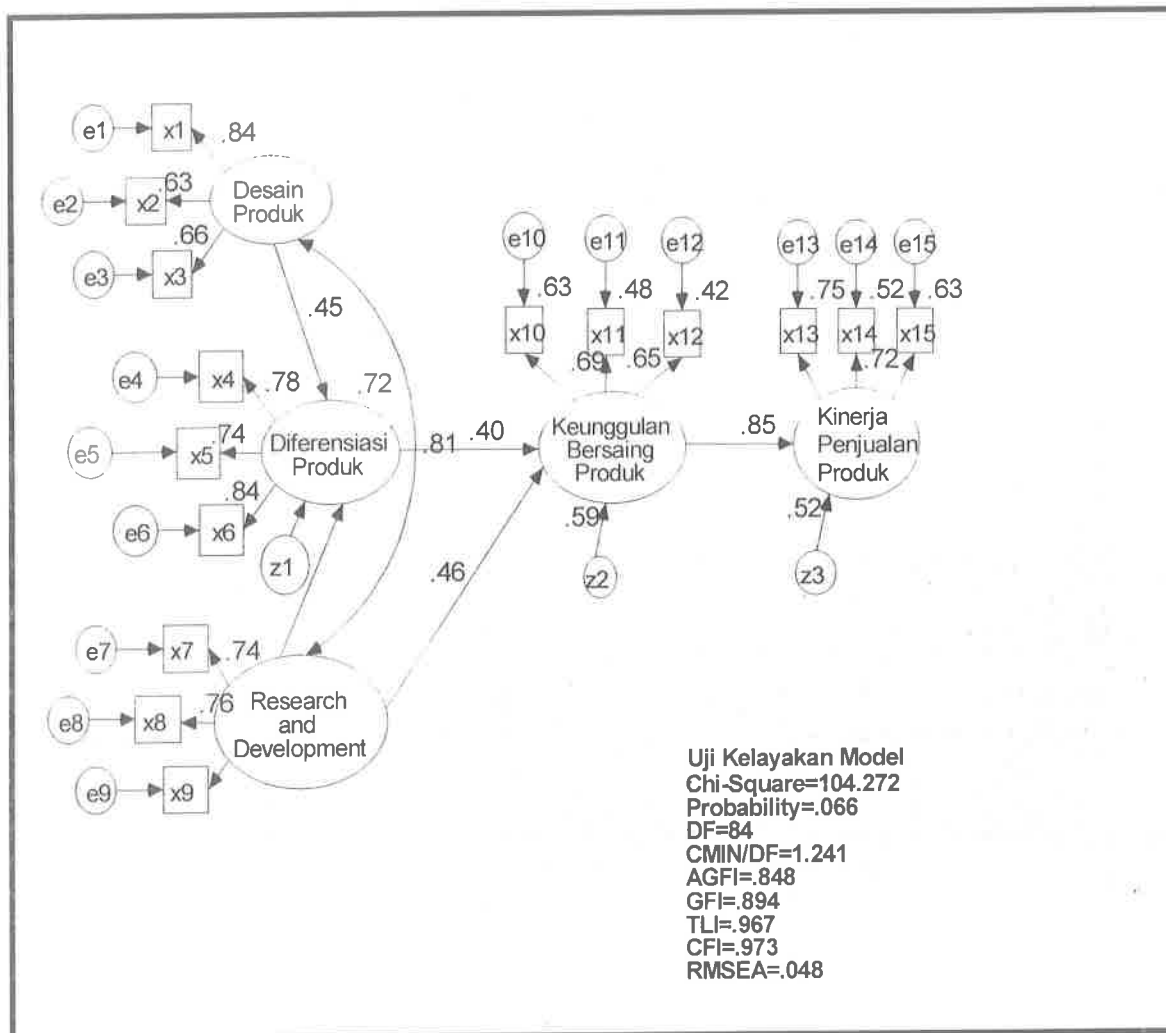 e1 x1 .84
Desain
Produk
e2 x2 .63
e3 x3 .66
.45
e4 x4 .78
.72
Diferensiasi
Produk
e5 x5 .74
e6 x6 .84
z1
.81 .40
e7 x7 .74
Research
and
Development
e8 x8 .76
e9 x9
.46
e10 e11 e12
.63 .48 .42
x10 x11 x12
.69 .65
Keunggulan
Bersaing
Produk
.59
z2
.85
e13 e14 e15
.75 .52 .63
x13 x14 x15
.72
Kinerja
Penjualan
Produk
.52
z3
Uji Kelayakan Model
Chi-Square=104.272
Probability=.066
DF=84
CMIN/DF=1.241
AGFI=.848
GFI=.894
TLI=.967
CFI=.973
RMSEA=.048